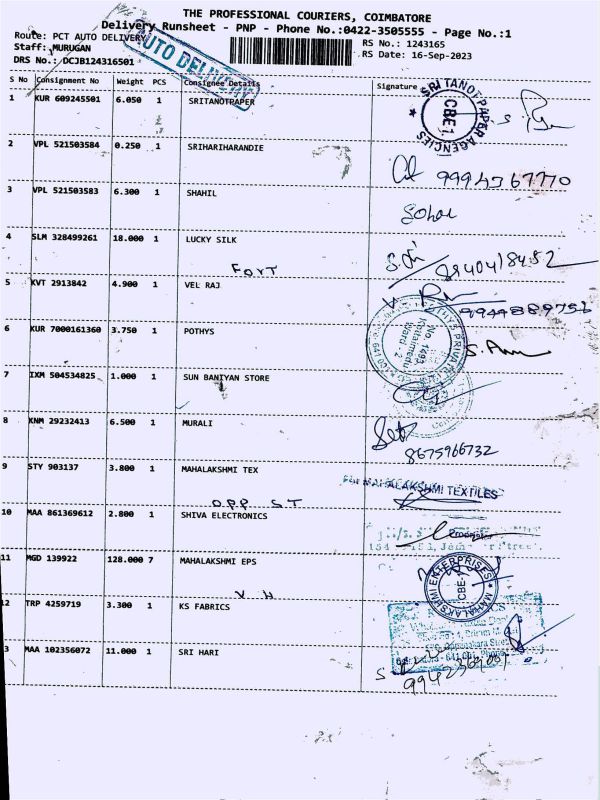 THE PROFESSIONAL COURIERS, COIMBATORE
Delivery Runsheet - PNP - Phone No.:0422-3505555 - Page No.:1
Route: PCT AUTO DELIVERY
RS No.: 1243165
Staff: MURUGAN
RS Date: 16-Sep-2023
DRS No.: DCJB124316501
AUTO DELIVERY
S No Consignment No Weight PCS Consignee Details Signature
1 KUR 609245501 6.050 1 SRITANOTPAPER
SRI TANOT PAPER AGENCIES
CBE 1
2 VPL 521503584 0.250 1 SRIHARIHARANDIE
9994367770
3 VPL 521503583 6.300 1 SHAHIL
4 SLM 328499261 18.000 1 LUCKY SILK
Fort
8940418452
5 KVT 2913842 4.900 1 VEL RAJ
9944889756
6 KUR 7000161360 3.750 1 POTHYS
7 IXM 504534825 1.000 1 SUN BANIYAN STORE
8 KNM 29232413 6.500 1 MURALI
8675966732
9 STY 903137 3.800 1 MAHALAKSHMI TEX
For MAHALAKSHMI TEXTILES
OPP S.T
10 MAA 861369612 2.800 1 SHIVA ELECTRONICS
Proprietor
11 MGD 139922 128.000 7 MAHALAKSHMI EPS
MAHALAKSHMI ENTERPRISES
CBE-1
V H
12 TRP 4259719 3.300 1 KS FABRICS
13 MAA 102356072 11.000 1 SRI HARI